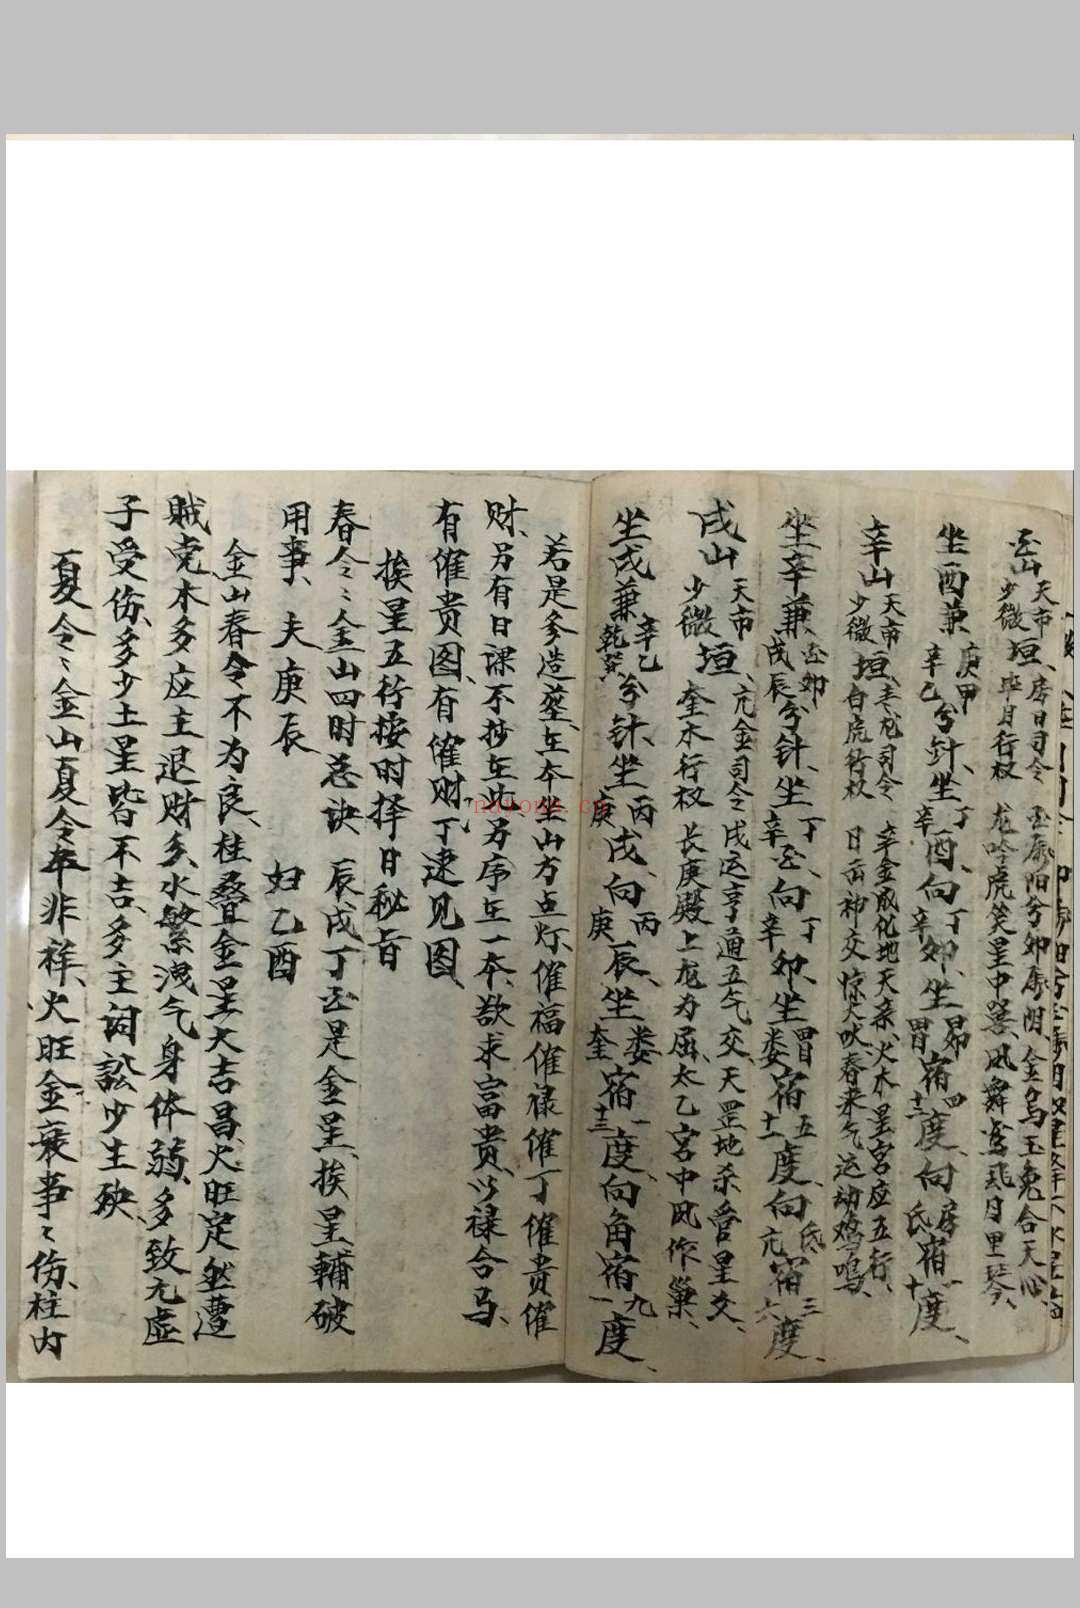 酉山天市少微垣、房日司令毕月行权 酉属阳兮卯属阴、金乌玉兔合天心、龙吟虎笑星中器、凤舞鸾飞月里琴、
坐酉兼庚甲辛乙分针、坐丁辛酉、向丁辛卯、坐昴胃宿四十三度、向房氐宿一十度、
辛山天市少微垣、青龙司令白虎行权 辛金成化地天亲、火木星宫应五行、日岳神交惊犬吠春来气运动鸡鸣、
坐辛兼酉卯戌辰分针、坐丁辛酉向丁辛卯、坐胃娄宿五十一度、向氐亢宿三六度、
戌山天市少微垣、亢金司令奎木行权 戌运亨通五气交、天罡地杀营星交、长庚殿上龙为屈、太乙宫中凤作巢、
坐戌兼辛乙乾巽分针、坐丙庚戌、向丙庚辰、坐娄奎宿一十三度、向角宿九一度、
若是参造葬、在本坐山方点灯、催福催禄催丁催贵催
财、另有日课不抄在此、另序在一本、欲求富贵、以禄合马、
有催贵图、有催财、丁逮见图、
挨星五行按时择日秘旨
春令：金山四时总诀 辰戌丁酉是金星、挨星辅破
用事、夫庚辰 妇乙酉
金山春令不为良、柱叠金星大吉昌、火旺定然遭
贼克木多应主退财多、水繁洩气身体弱、多致尢虚
子受伤、多少土星皆不吉、多主词讼少主殃、
夏令：金山夏令年非祥、火旺金衰事：伤、柱内
nayona.cn